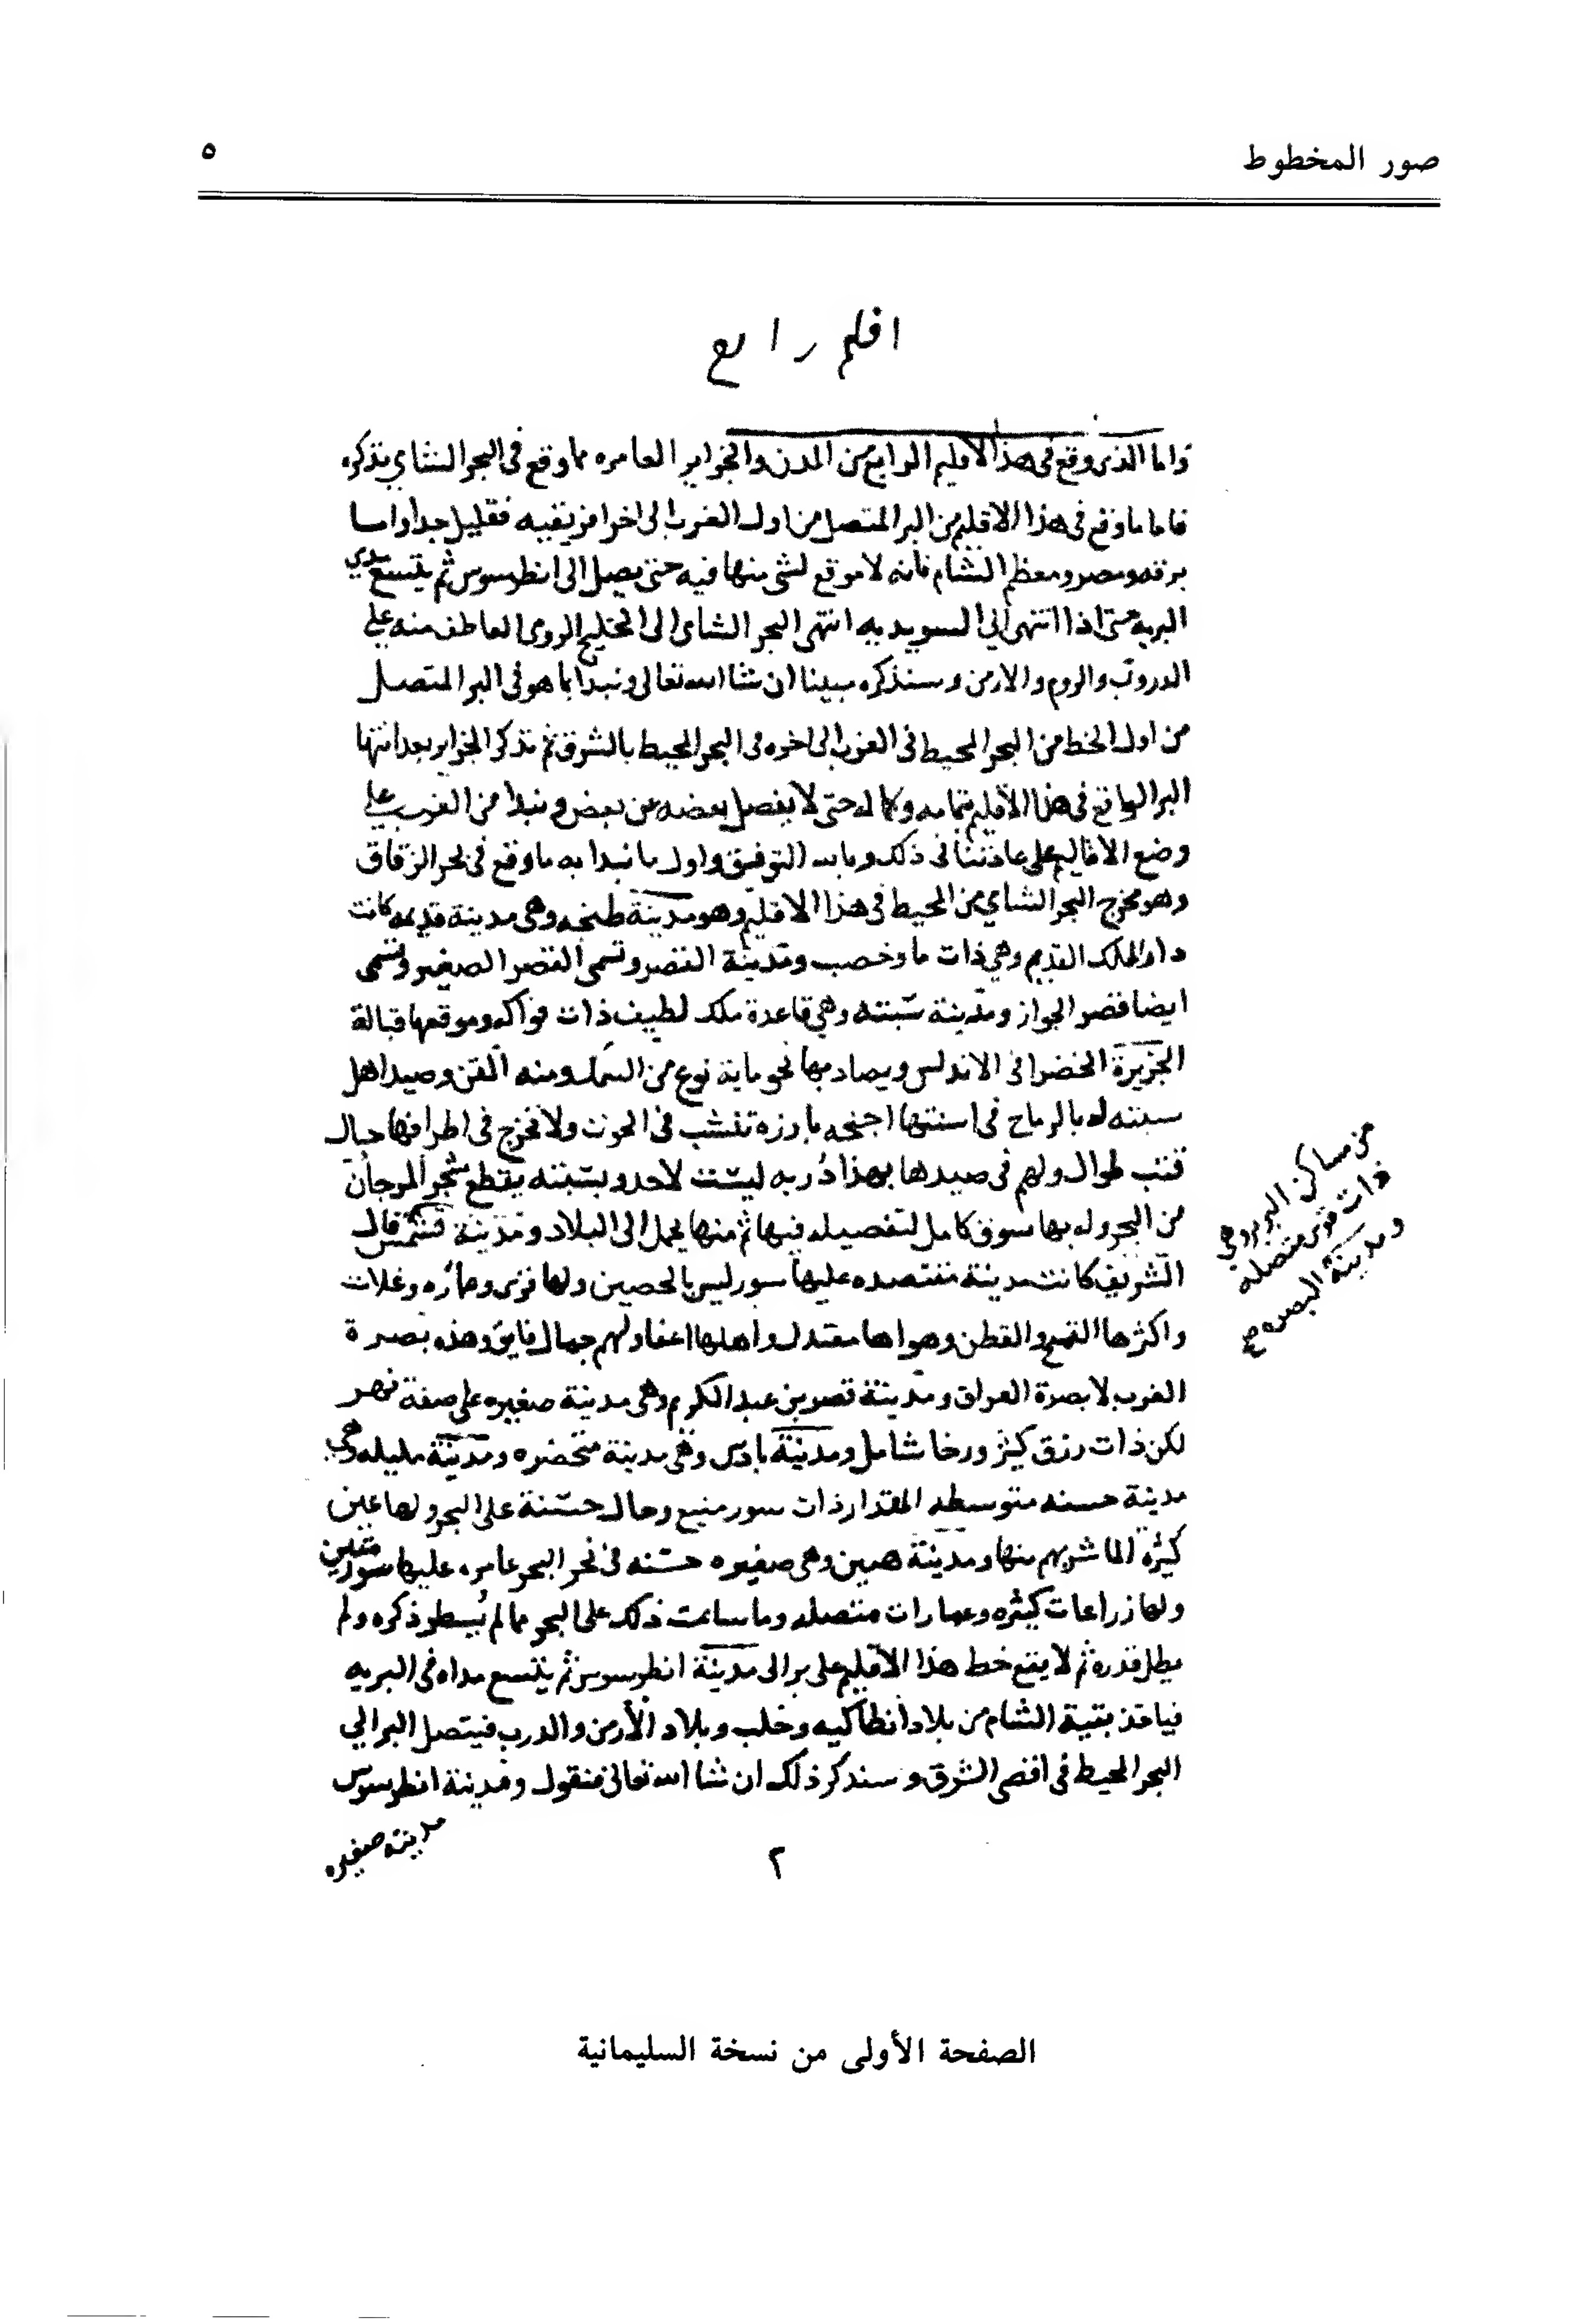 صور المخطوط
٥
اقليم رابع
واما الذي وقع فى هذا الاقليم الرابع من المدن والجزاير العامره مما وقع فى البحر الشامي نذكره
فاما ما وقع فى هذا الاقليم من البر المتصل من اول الغرب الى اخر افريقيه فقليل جدا واما
برقه ومصر ومعظم الشام فانه لا موقع لشى منها فيه حتى يصل الى انطرسوس ثم يتسع مدي
البريه حتى اذا انتهى الي السويديه انتهى البحر الشامى الى الخليج الرومى العاطف منه على
الدروب والروم والارمن وسنذكره مبينا ان شا الله تعالى ونبدا بما هو فى البر المتصل
من اول الخط من البحر المحيط فى الغرب الى اخره فى البحر المحيط بالشرق ثم نذكر الجزاير بعد انتها
البر الواقع فى هذا الاقليم بتمامه وكماله حتى لا يفصل بعضه عن بعض ونبدا من الغرب على
وضع الاقاليم على عادتنا فى ذلك وبالله التوفيق واول ما نبدا به ما وقع فى بحر الزقاق
وهو مخرج البحر الشامي من المحيط فى هذا الاقليم وهو مدينة طنجه وهى مدينة قديمه كانت
دار الملك القديم وهي ذات ما وخصب ومدينة القصر وتسمى القصر الصغير وتسمى
ايضا قصر الجواز ومدينة سبته وهي قاعدة ملك لطيف ذات فواكه وموقعها قبالة
الجزيرة الخضرا فى الاندلس ويصاد بها نحو ماية نوع من السمك ومنه التن وصيد اهل
سبته له بالرماح فى اسنتها اجنحه بارزه تنشب فى الحوت ولا تخرج فى اطرافها حبال
قنب طوال ولهم فى صيدها بهذا دربه ليست لاحد وبسبته يقطع شجر المرجان
من البحر وله بها سوق كامل لتفصيله فيها ثم منها يحمل الى البلاد ومدينة تشمس قال
الشريف كانت مدينة مقتصده عليها سور ليس بالحصين ولها قرى وعماره وغلات
واكثرها القمح والقطن وهواها معتدل واهلها اعفا ولهم جمال فايق وهذه بصرة
الغرب لا بصرة العراق ومدينة قصر بن عبد الكريم وهى مدينة صغيره على ضفة نهر
لكن ذات رزق كثير ورخا شامل ومدينة بادس وهى مدينة متحضره ومدينة مليله وهي
مدينة حسنه متوسطه المقدار ذات سور منيع وحال حسنة على البحر ولها عين
كثيرة الما شربهم منها ومدينة هنين وهى صغيره حسنه فى نحر البحر عامره عليها سور متقن
ولها زراعات كثيره وعمارات متصله وما سامت ذلك على البحر مما لم يسطر ذكره ولم
يطل قدره ثم لا يقع خط هذا الاقليم على بر الى مدينة انطرسوس ثم يتسع مداه فى البريه
فياخذ بقية الشام من بلاد انطاكيه وحلب وبلاد الأرمن والدرب فيتصل البر الي
البحر المحيط فى اقصى الشرق وسنذكر ذلك ان شا الله تعالى فنقول ومدينة انطرسوس
مدينة صغيره
من مساكن البربر وهى
ذات قرى متصله
ومدينة البصره صح
٢
الصفحة الأولى من نسخة السليمانية